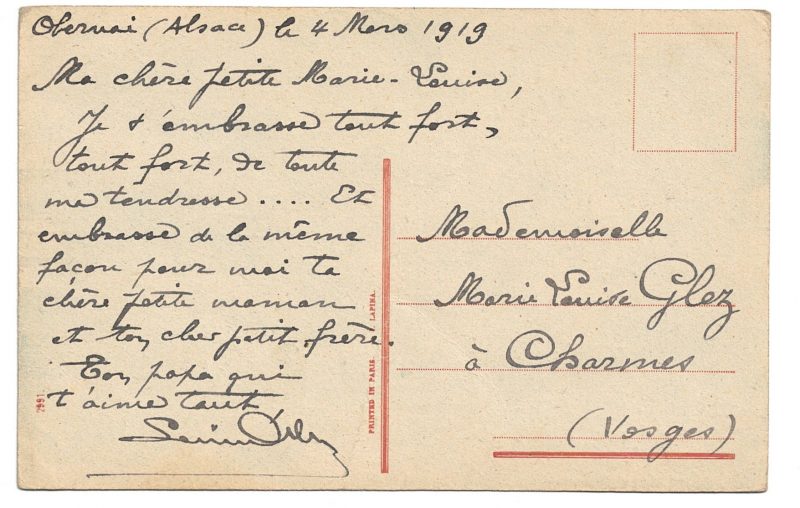 Obernai (Alsace) le 4 Mars 1919
Ma chère petite Marie-Louise,
Je t'embrasse tout fort,
tout fort, de toute
ma tendresse .... Et
embrasse de la même
façon pour moi ta
chère petite maman
et ton cher petit frère.
Ton papa qui
t'aime tant
2991.
PRINTED IN PARIS. LAPINA.
Mademoiselle
Marie Louise Glez
à Charmes
(Vosges)